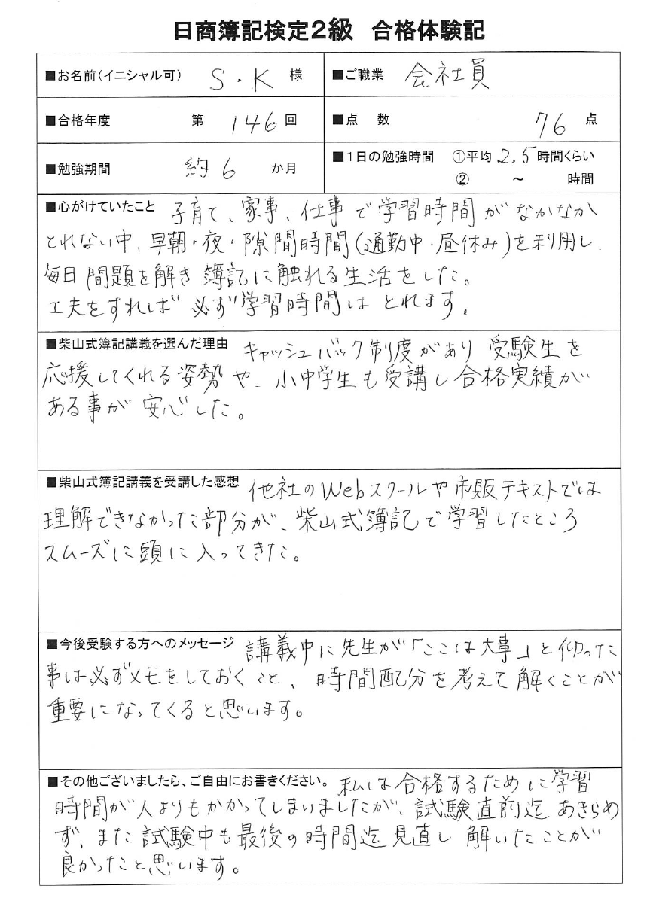 日商簿記検定2級 合格体験記
■お名前(イニシャル可) S・K 様 ■ご職業 会社員
■合格年度 第 146 回 ■点 数 76 点
■勉強期間 約6 か月 ■1日の勉強時間 ①平均 2.5 時間くらい
② ～ 時間
■心がけていたこと 子育て、家事、仕事で学習時間がなかなか
とれない中、早朝・夜・隙間時間(通勤中・昼休み)を利用し、
毎日問題を解き簿記に触れる生活をした。
工夫をすれば必ず学習時間はとれます。
■柴山式簿記講義を選んだ理由 キャッシュバック制度があり受験生を
応援してくれる姿勢や、小中学生も受講し合格実績が
ある事が安心した。
■柴山式簿記講義を受講した感想 他社のWebスクールや市販テキストでは
理解できなかった部分が、柴山式簿記で学習したところ
スムーズに頭に入ってきた。
■今後受験する方へのメッセージ 講義中に先生が「ここは大事」と仰った
事は必ずメモをしておくこと、時間配分を考えて解くことが
重要になってくると思います。
■その他ございましたら、ご自由にお書きください。 私は合格するために学習
時間が人よりもかかってしまいましたが、試験直前迄あきらめ
ず、また試験中も最後の時間迄見直し解いたことが
良かったと思います。